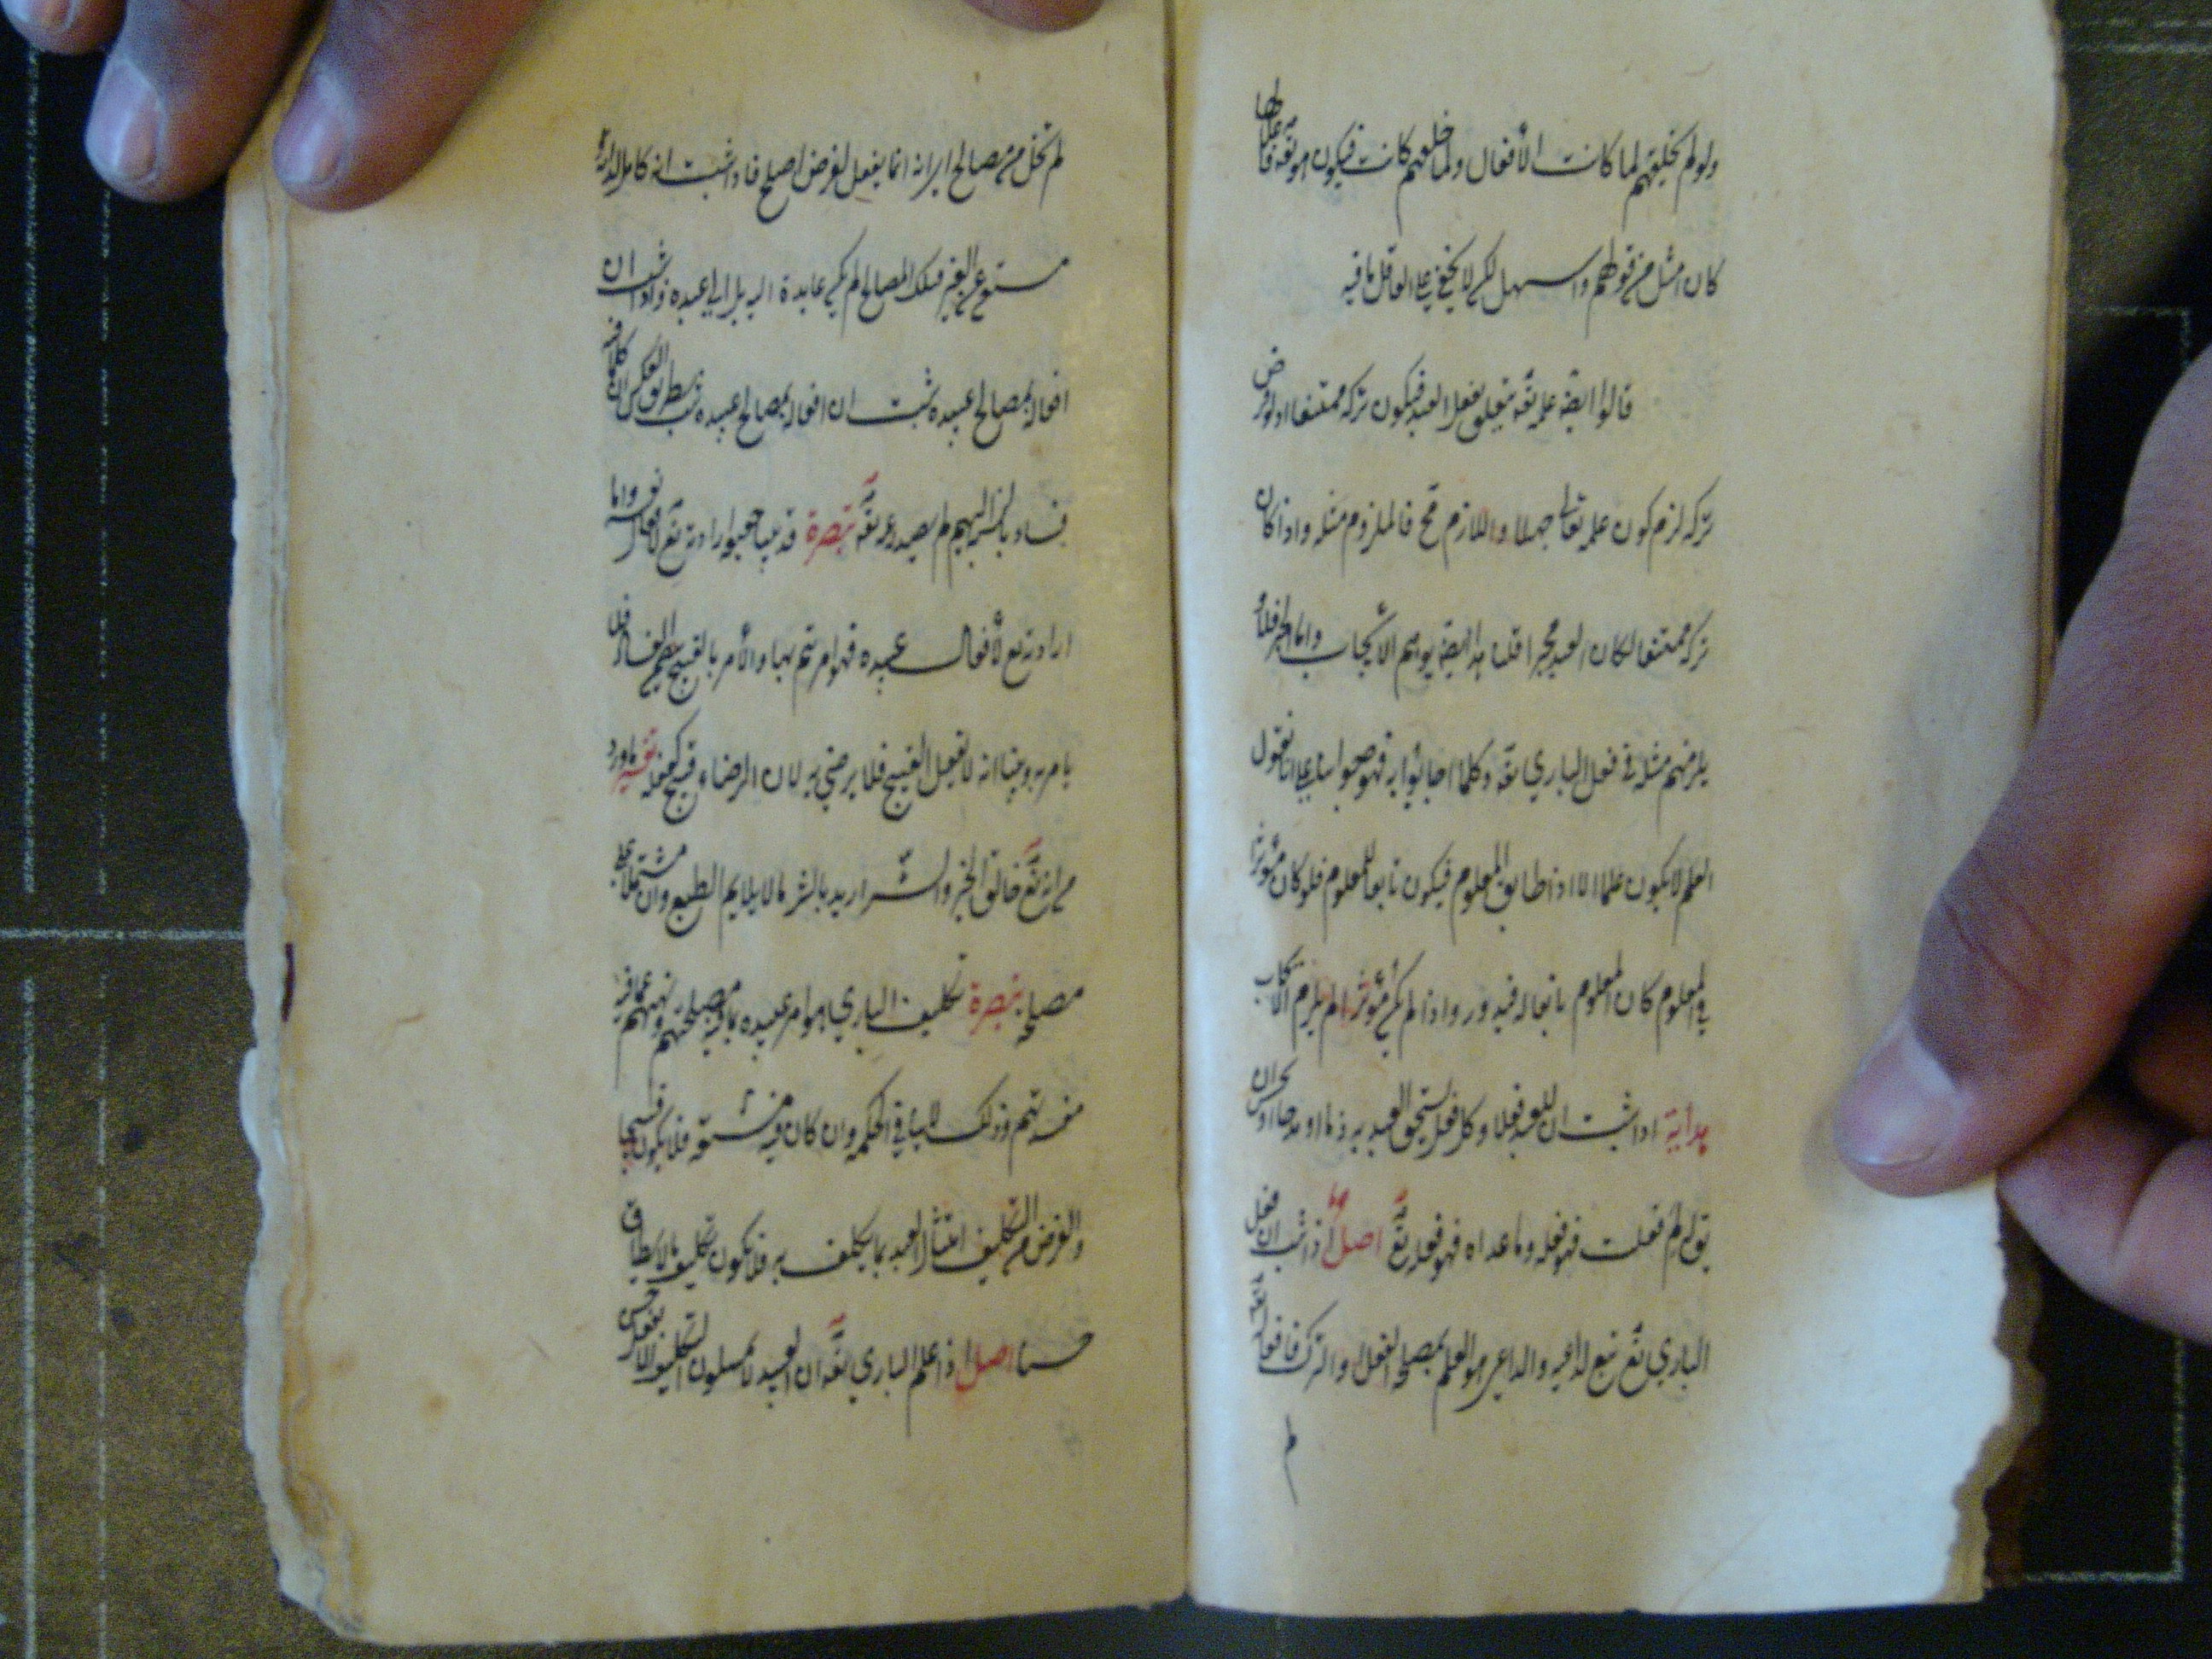 ولو لم يخلقهم لما كانت الأفعال ولما خلقهم كانت فيكون هو تعه فاعلها
كان امثل من قولهم واسهل لكن لا يخفى على العاقل ما فيه
قالوا ايضه علمه تعه متعلق بفعل العبد فيكون تركه ممتنعا اذ لو فرض
تركه لزم كون علمه تعالى جهلا واللازم مح فالملزوم مثله واذا كان
تركه ممتنعا لكان العبد مجبرا قلنا هذا ايضه يوهم الايجاب واما الجبر فلا و
يلزمهم مثله في فعل الباري تعه وكلما اجابوا به فهو جوابنا على انا نقول
العلم لا يكون علما الا اذا طابق المعلوم فيكون تابعا للمعلوم فلو كان مؤثرا
في المعلوم كان المعلوم تابعا له فيدور واذا لم يكن مؤثرا لم يلزم الايجاب
هداية اذا ثبت ان للعبد فعلا وكل فعل يستحق العبد به ذما او مدحا او يحسن ان
يق له لم فعلت فهو فعله وما عداه فهو فعله تع اصل اذا ثبت ان فعل
الباري تع تبع لداعيه والداعي هو العلم بمصلحة الفعل او الترك فافعاله تعه
لم
لم تخل من مصالح اي انه انما يفعل لغرض اصلح فاذا ثبت انه كامل لذاته
مستغن عن الغير فتلك المصالح لم يكن عايدة اليه بل الى عبيده واذا ثبت ان
افعاله لمصالح عبيده ثبت ان افعاله لمصالح عبيده ثبت بطريق العكس ان كلما فيه
فساد بالنسبة اليهم لم يصدر عنه تعه تبصرة قد بينا حقيقة ارادته تع لافعال نفسه واما
ارادته تع لأفعال عبيده فهو امرهم بها والأمر بالقبيح يتضمن الفساد فلا
يامر به وبينا انه لا يفعل القبيح فلا يرضى به لان الرضاء قبيح كفعله تفسير ما ورد
من انه تع خالق الخير والشر اريد بالشر ما لا يلايم الطبع وان كان مشتملا على
مصلحة تبصرة تكليف الباري هو امر عبيده بما فيه مصلحتهم ونهيهم عما فيه
مفسدتهم وذلك لا ينافي الحكمة وان كان فيه مشقة فلا يكون قبيحا
والغرض من التكليف امتثال العبد بما يكلف به فلا يكون تكليف ما لا يطاق
حسنا اصل اذا علم الباري تعه ان العبيد لا يمتثلون التكليف الا بفعل حسن